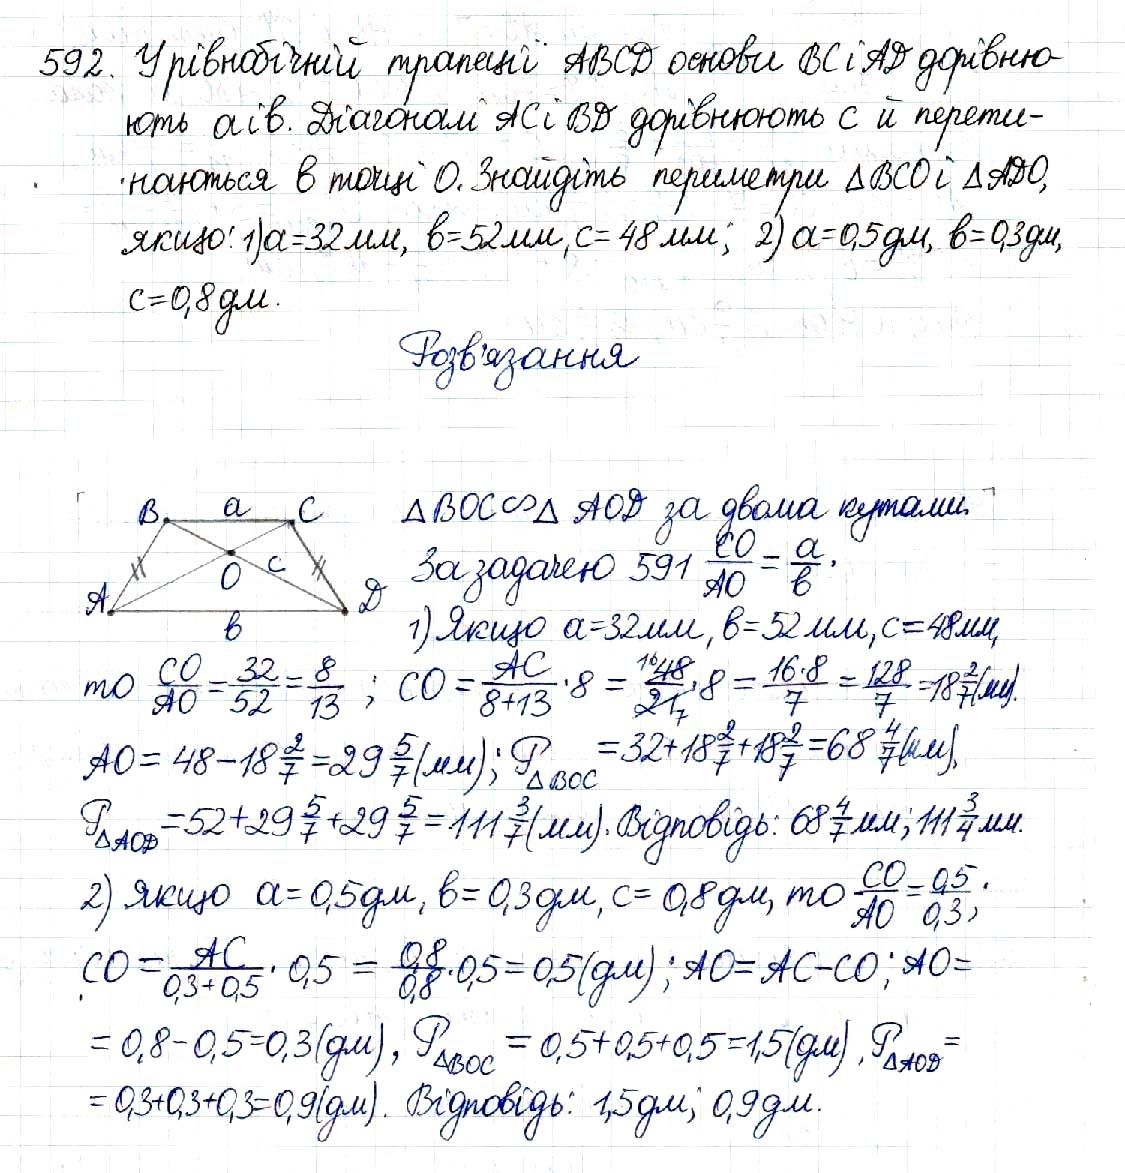 592. У рівнобічній трапеції ABCD основи BC і AD дорівню-
ють a і b. Діагоналі AC і BD дорівнюють c й перети-
наються в точці O. Знайдіть периметри △BCO і △ADO,
якщо: 1) a=32мм, b=52мм, c=48мм; 2) a=0,5дм, b=0,3дм,
c=0,8дм.
Розв'язання
B a C
O c
A b D
△BOC∽△AOD за двома кутами.
За задачею 591 CO/AO = a/b.
1) Якщо a=32мм, b=52мм, c=48мм,
то CO/AO = 32/52 = 8/13; CO = AC/(8+13) · 8 = 16 48/21 7 · 8 = 16·8/7 = 128/7 = 18 2/7 (мм).
AO = 48 - 18 2/7 = 29 5/7 (мм); P△BOC = 32 + 18 2/7 + 18 2/7 = 68 4/7 (мм),
P△AOD = 52 + 29 5/7 + 29 5/7 = 111 3/7 (мм). Відповідь: 68 4/7 мм; 111 3/4 мм.
2) Якщо a=0,5дм, b=0,3дм, c=0,8дм, то CO/AO = 0,5/0,3;
CO = AC/(0,3+0,5) · 0,5 = 0,8/0,8 · 0,5 = 0,5 (дм); AO = AC - CO; AO =
= 0,8 - 0,5 = 0,3 (дм), P△BOC = 0,5+0,5+0,5 = 1,5 (дм). P△AOD =
= 0,3+0,3+0,3 = 0,9 (дм). Відповідь: 1,5дм; 0,9дм.